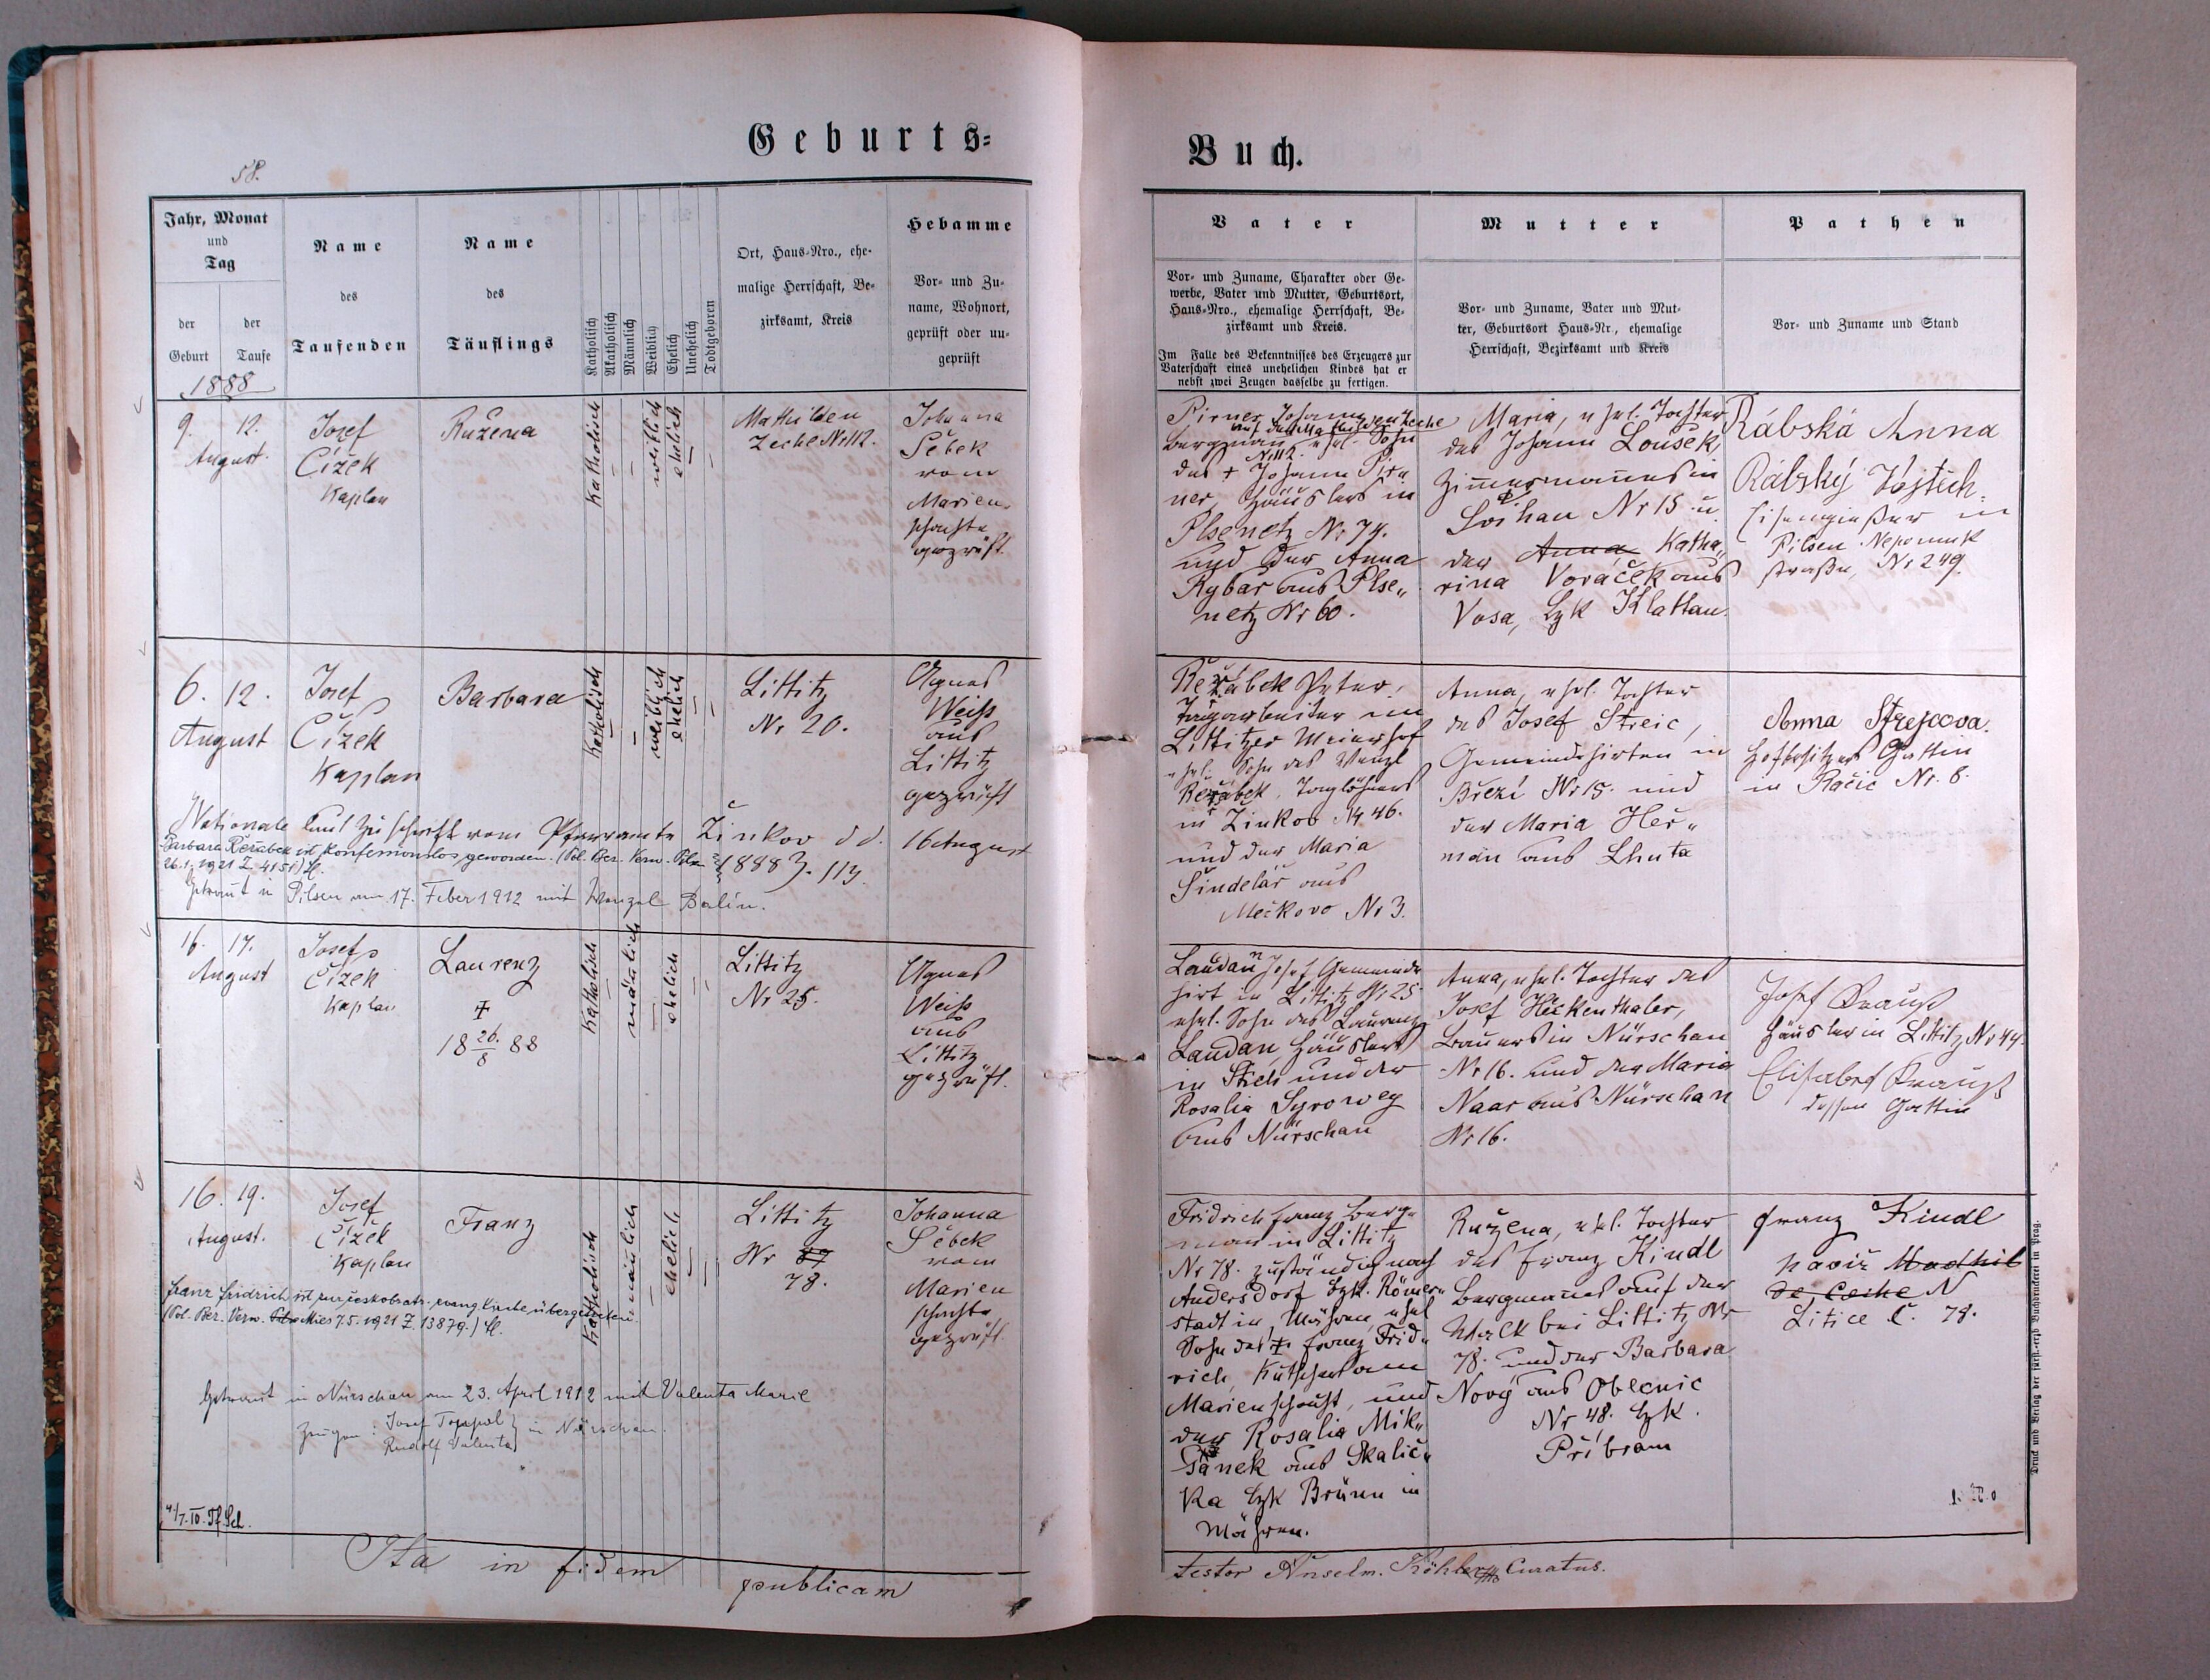 Geburts=
58.
Jahr, Monat
und
Tag
der
Geburt
der
Taufe
1888
Name
des
Taufenden
Name
des
Täuflings
Katholisch
Akatholisch
Männlich
Weiblich
Ehelich
Unehelich
Todtgeboren
Ort, Haus-Nro., ehe-
malige Herrschaft, Be-
zirksamt, Kreis
Hebamme
Vor- und Zu-
name, Wohnort,
geprüft oder un-
geprüft
9. 12.
August.
Josef
Čížek
Kaplan
Ružena
Katholisch
weiblich
ehelich
Mathilden
Zeche Nr 112.
Johanna
Šebek
vom
Marien-
schachte
geprüft.
6. 12.
August
Josef
Čížek
Kaplan
Barbara
Katholisch
weiblich
ehelich
Littitz
Nr 20.
Agnes
Weiss
aus
Littitz
geprüft
Nationale laut Zuschrift vom Pfarramte Žinkov dd. 16 August
Barbara Řeřabek ist konfessionslos geworden. (Pol. Bez. Verw. Pilsen 1888 Z. 113.
26.1. 1921 Z. 4151)
Getraut in Pilsen am 17. Feber 1912 mit Wenzel Balín.
16. 17.
August
Josef
Čížek
Kaplan
Laurenz
†
18 26./8 88
Katholisch
männlich
ehelich
Littitz
Nr 25.
Agnes
Weiss
aus
Littitz
geprüft.
16. 19.
August.
Josef
Čížek
Kaplan
Franz
Katholisch
männlich
ehelich
Littitz
Nr 87
78.
Johanna
Šebek
vom
Marien
schachte
geprüft.
Franz Fridrich ist zur českobratr. evang. Kirche übergetreten
(Pol. Bez. Verw. Mies 7.5. 1921 Z. 13879.)
Getraut in Nürschan am 23. April 1912 mit Valenta Marie
Zeugen: Josef Toppol
Rudolf Valenta } in Nürschan.
Ita in fidem publicam
Buch.
Vater
Vor- und Zuname, Charakter oder Ge-
werbe, Vater und Mutter, Geburtsort,
Haus-Nro., ehemalige Herrschaft, Be-
zirksamt und Kreis.
Im Falle des Bekenntnisses des Erzeugers zur
Vaterschaft eines unehelichen Kindes hat er
nebst zwei Zeugen dasselbe zu fertigen.
Mutter
Vor- und Zuname, Vater und Mut-
ter, Geburtsort Haus-Nr., ehemalige
Herrschaft, Bezirksamt und Kreis
Pathen
Vor- und Zuname und Stand
Pirner Johann
auf der Mathildenzeche
Bergman, ehel. Sohn
Nr 112.
des † Johann Pir„
ner Häuslers in
Plsenetz Nr 74.
und der Anna
Rybař aus Plse„
netz Nr 60.
Maria, ehel. Tochter
des Johann Loušek,
Zimmermannes in
Nr 15 u
der Anna Katha„
rina Voráček aus
Vosa, Bzk Klattau.
Rábská Anna
Rábský Vojtěch
Eisengießer in
Pilsen Nepomuk
straße, Nr 249.
Řeřabek Peter,
Tagarbeiter im
Littitzer Meierhof
ehel. Sohn des Wenzl
Řeřabek, Taglöhners
in Žinkov Nr 46.
und der Maria
Šindelář aus
Měčkovo Nr 3.
Anna, ehel. Tochter
des Josef Streic,
Gemeindehirten in
Březí Nr 15. und
der Maria Heř„
man aus Lhuta
Anna Strejcova.
Hofbesitzers Gattin
in Račic Nr. 8.
Laudan Josef Gemeinde
hirt in Littitz Nr 25
ehel. Sohn des Laurenz
Laudan, Häuslers
in Stich und der
Rosalia Syrowey
aus Nürschan
Anna, ehel. Tochter des
Josef Heckenthaler,
Bauers in Nürschan
Nr 16. und der Maria
Naar aus Nürschan
Nr 16.
Josef Krauß
Häusler in Littitz Nr 44.
Elisabet Krauß
dessen Gattin
Fridrich Franz Berg„
man in Littitz
Nr 78. zuständig nach
Andersdorf Bzk. Römer„
stadt in Mähren, ehel
Sohn des † Franz Frid„
rich, Kutschers am
Marienschacht, und
der Rosalia Mik„
šánek aus Skalič„
ka Bzk Brünn in
Mähren.
Ružena, ehel. Tochter
des Franz Kindl
Bergmannes auf der
bei Littitz Nr
78. und der Barbara
Nový aus Obecnic
Nr 48. Bzk.
Příbram
Franz Kindl
havíř
N
Litice č. 78.
testor Anselm. Köhler Curatus.
Druck und Verlag der fürst-erzb. Buchdruckerei in Prag.